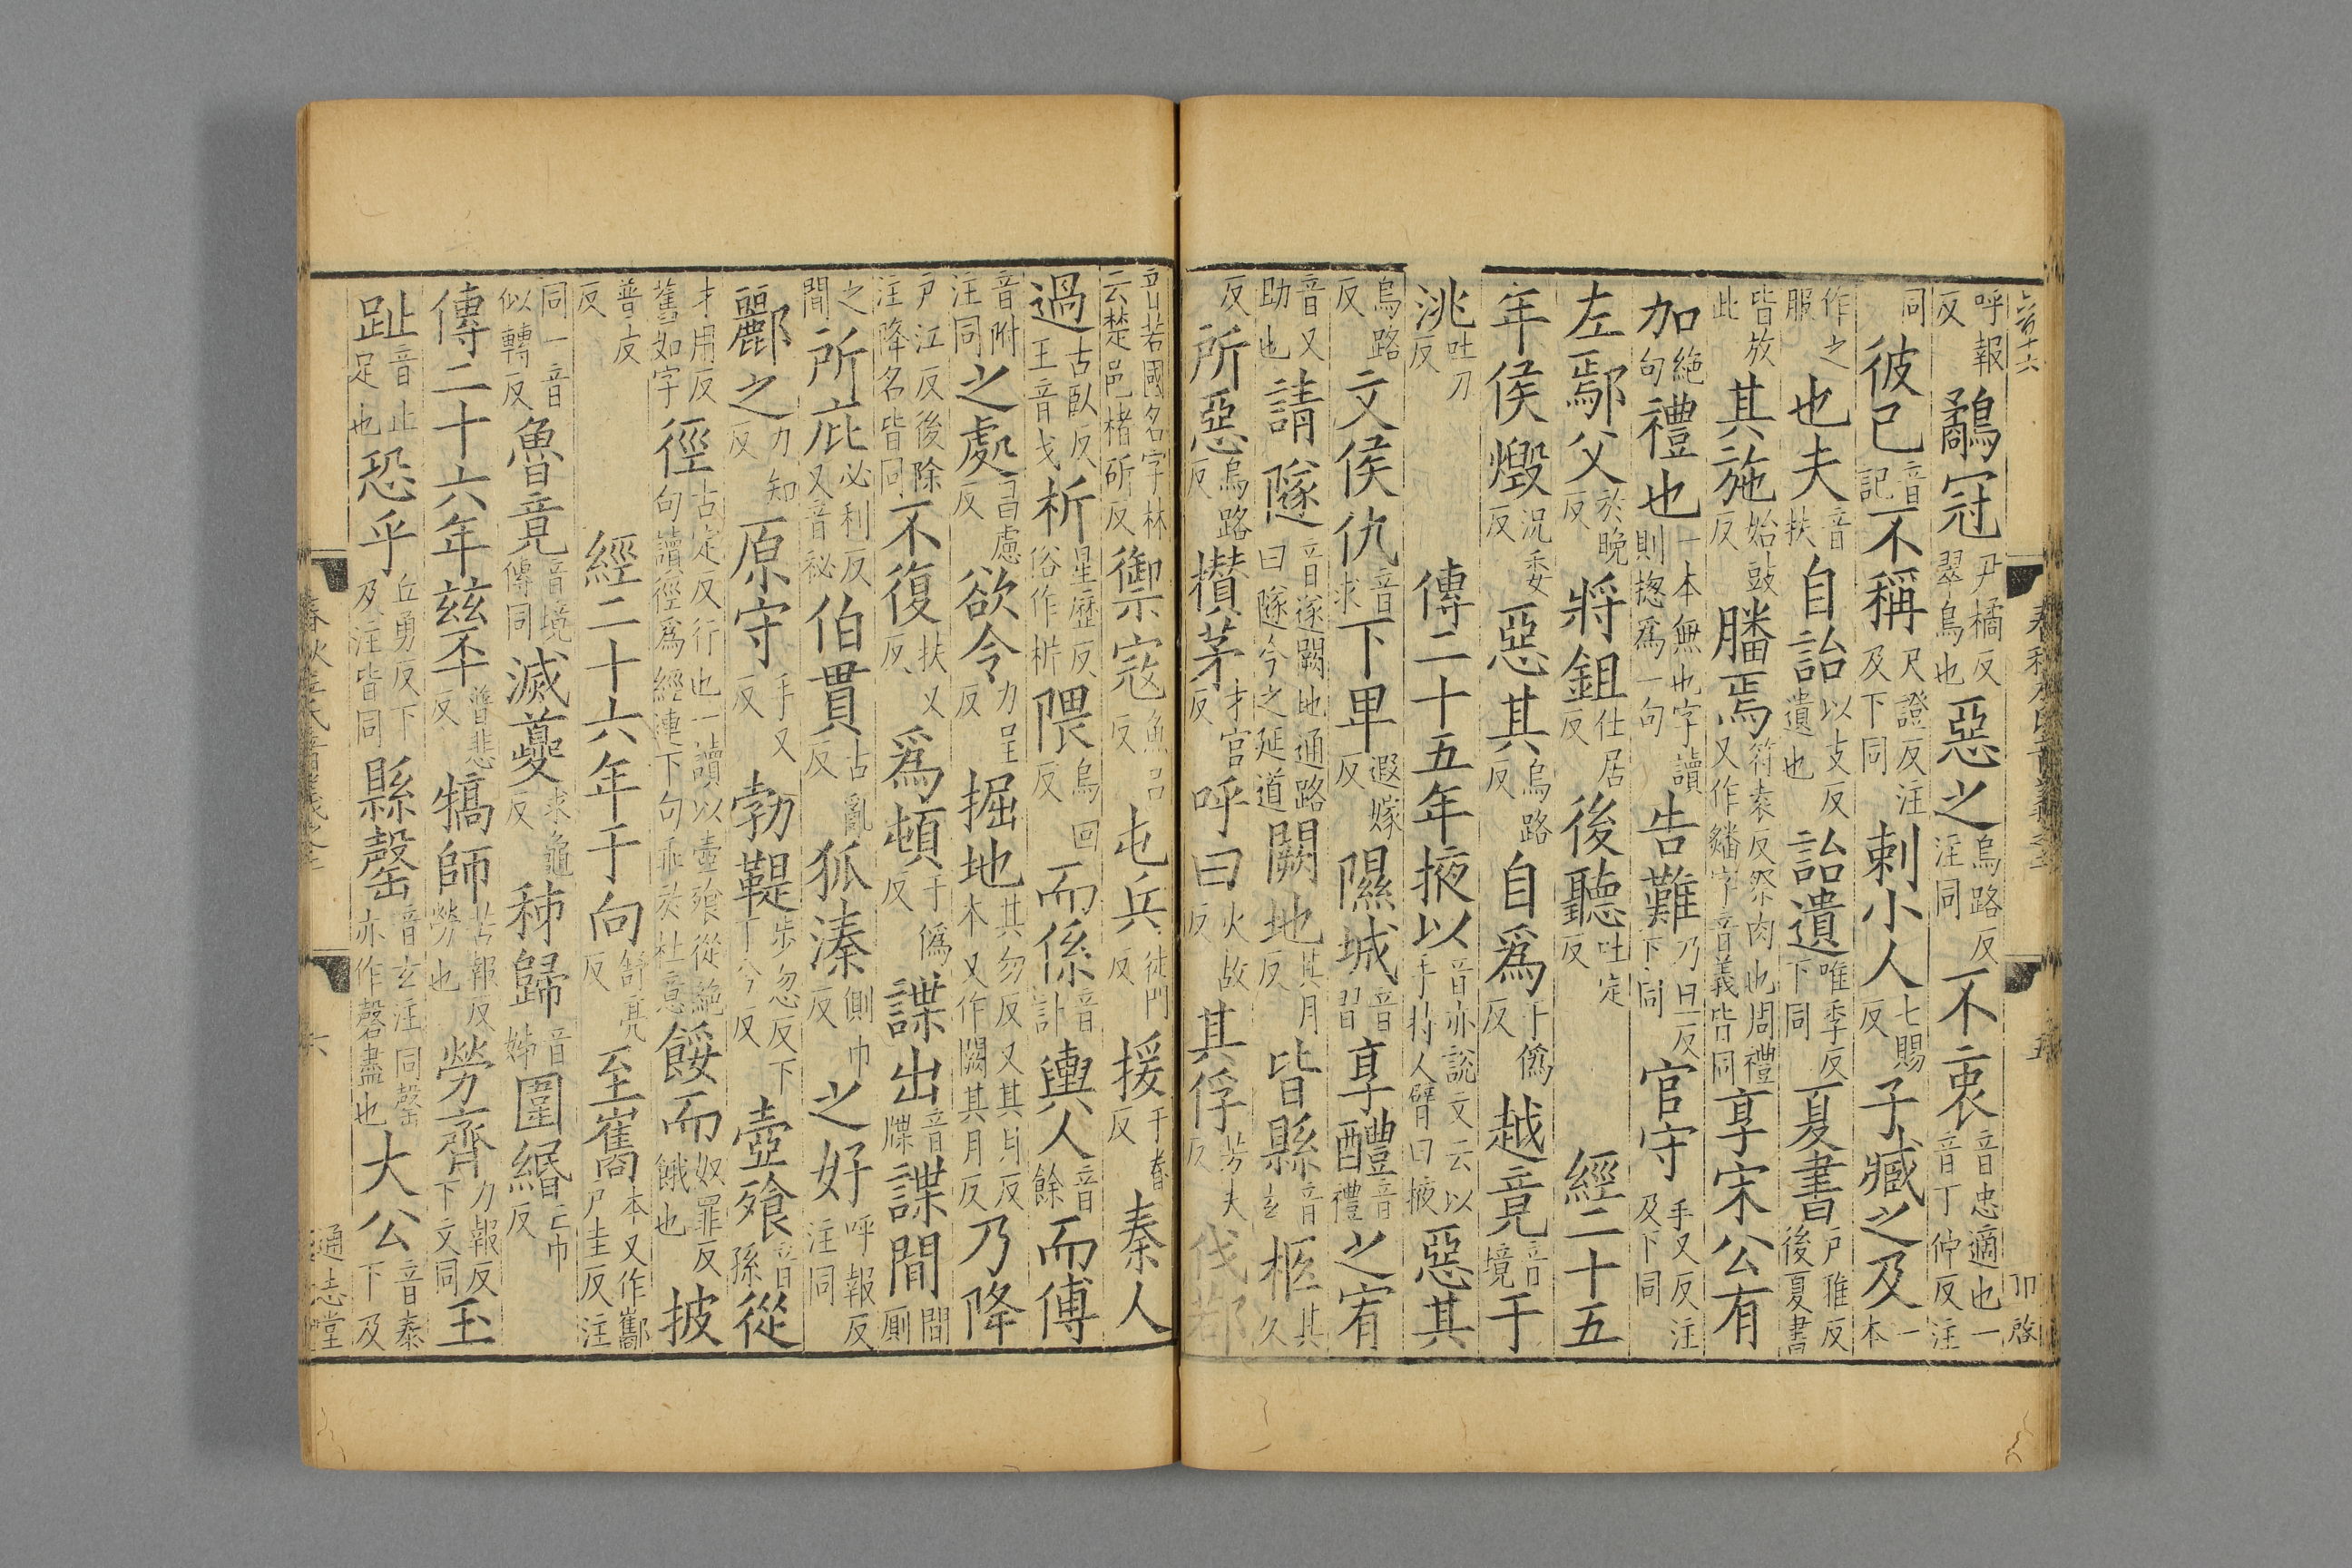 六百十六 卬啓
呼報反鷸冠尹橘反翠鳥也惡之烏路反注同不衷音忠適也一音丁仲反注
同彼己音記不稱尺證反注及下同刺小人七賜反子臧之及一本
作之服也夫音扶自詒以支反遺也詒遺唯季反下同夏書戶雅反後夏書
皆放此其施始豉反膰焉符袁反祭肉也周禮又作字音義皆同享宋公有
加絶句禮也一本無也字讀則揔爲一句告難乃旦反下同官守手又反注及下同
左鄢父於晚反將鉏仕居反後聽吐定反經二十五
年侯燬況委反惡其烏路反自爲于僞反越竟音境于
洮吐刀反傳二十五年掖以音亦說文云以手持人臂曰掖惡其
烏路反文侯仇音求下卑遐嫁反隰城音習享醴音禮之宥
音又助也請隧音遂闕地通路曰隧今之延道闕地其月反皆縣音玄柩其久
反所惡烏路反攢茅才官反呼曰火故反其俘芳夫反伐鄀
音若國名字林云楚邑楮斫反禦寇魚呂反屯兵徒門反援于眷反秦人
過古臥反王音戈析星歷反俗作枡隈烏回反而係音計輿人音餘而傅
音附注同之處昌慮反欲令力呈反掘地其勿反又其月反本又作闕其月反乃降
戶江反後除注降名皆同不復扶又反爲頓于僞反諜出音牒諜間間厠
之間所庇必利反又音祕伯貫古亂反狐溱側巾反之好呼報反注同
酈之力知反原守手又反勃鞮步忽反下丁兮反壺飱音孫從
才用反舊如字徑古定反行也一讀以壺飱從絶句讀徑爲經連下句乖於杜意餒而奴罪反餓也披
普皮反經二十六年于向舒亮反至巂本又作酅戶圭反注
同一音似轉反魯竟音境傳同滅夔求龜反秭歸音姊圍緡亡巾反
傳二十六年兹丕普悲反犒師苦報反勞也勞齊力報反下文同玉
趾音止足也恐乎丘勇反下及注皆同縣罄音玄注同罄亦作磬盡也大公音泰下及
春秋左氏音義之二 六 通志堂